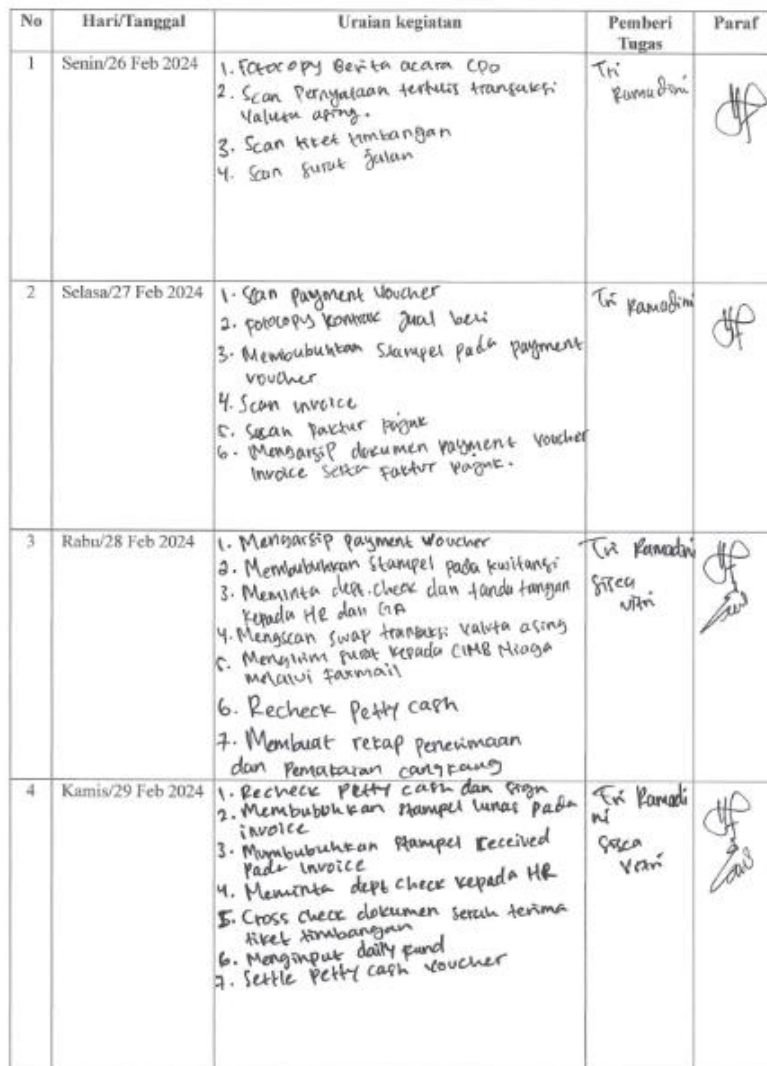 No Hari/Tanggal Uraian kegiatan Pemberi Tugas Paraf
1 Senin/26 Feb 2024
1. Fotocopy Berita acara CPO
2. Scan Pernyataan tertulis transaksi
Valuta asing.
3. Scan tiket timbangan
4. Scan surat jalan
Tri
Ramadini
2 Selasa/27 Feb 2024
1. Scan payment voucher
2. Fotocopy kontrak jual beli
3. Membubuhkan Stampel pada payment
voucher
4. Scan invoice
5. Scan Faktur Pajak
6. Mengarsip dokumen payment voucher
Invoice serta Faktur Pajak.
Tri Ramadini
3 Rabu/28 Feb 2024
1. Mengarsip payment voucher
2. Membubuhkan Stampel pada kwitansi
3. Meminta dept.check dan tanda tangan
kepada HR dan GA
4. Mengscan swap transaksi valuta asing
5. Mengirim surat kepada CIMB Niaga
melalui Faxmail
6. Recheck Petty cash
7. Membuat rekap penerimaan
dan Pemakaian cangkang
Tri Ramadini
Sisca
Vitri
4 Kamis/29 Feb 2024
1. Recheck Petty cash dan sign
2. Membubuhkan stampel lunas pada
invoice
3. Mumbubuhkan stampel received
Pada invoice
4. Meminta dept check kepada HR
5. Cross check dokumen serah terima
tiket timbangan
6. Menginput daily fund
7. Settle Petty cash voucher
Tri Ramadi
ni
Sisca
Vitri